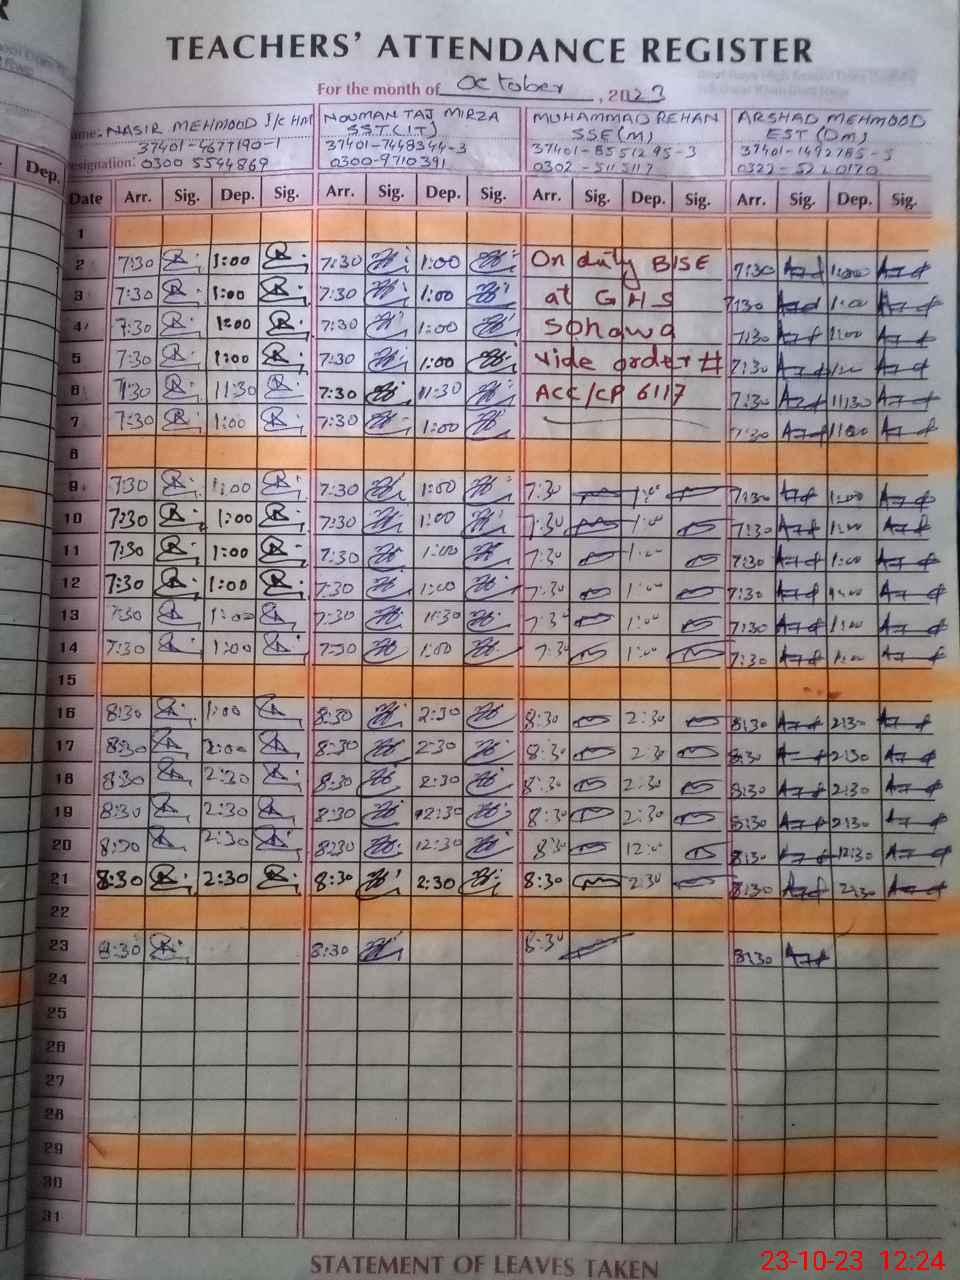 TEACHERS' ATTENDANCE REGISTER
For the month of October, 2023
Name: NASIR MEHMOOD I/C HM NOUMAN TAJ MIRZA MUHAMMAD REHAN ARSHAD MEHMOOD
SST(IT) SSE(M) EST (DM)
37401-4677190-1 37401-7448344-3
Designation: 0300 5544869 0300-9710391
Dep.
Date Arr. Sig. Dep. Sig. Arr. Sig. Dep. Sig. Arr. Sig. Dep. Sig. Arr. Sig. Dep. Sig.
1
2 7:30 1:00 7:30 1:00 On duty BISE 7:30 1:00
3 7:30 1:00 7:30 1:00 at GHS 7:30 1:00
4 7:30 1:00 7:30 1:00 Sohawa 7:30 1:00
5 7:30 1:00 7:30 1:00 vide order # 7:30
6 7:30 11:30 7:30 11:30 ACC/CP 6117 7:30 11:30
7 7:30 1:00 7:30 1:00 7:30
8
9 7:30 1:00 7:30 1:00 7:30 1:00 7:30 1:00
10 7:30 1:00 7:30 1:00 7:30 1:00 7:30 1:00
11 7:30 1:00 7:30 1:00 7:30 1:00 7:30 1:00
12 7:30 1:00 7:30 1:00 7:30 1:00 7:30
13 7:30 1:00 7:30 7:30 1:00 7:30 1:00
14 7:30 1:00 7:30 1:00 7:30 1:00 7:30 1:00
15
16 8:30 1:00 8:30 2:30 8:30 2:30 8:30 2:30
17 8:30 8:30 2:30 8:30 2:30 8:30 2:30
18 8:30 2:30 8:30 2:30 8:30 2:30 8:30 2:30
19 8:30 2:30 8:30 2:30 8:30 2:30 8:30 2:30
20 8:30 2:30 8:30 12:30 8:30 8:30 12:30
21 8:30 2:30 8:30 2:30 8:30 2:30 8:30 2:30
22
23 8:30 8:30 8:30 8:30
24
25
26
27
28
29
30
31
STATEMENT OF LEAVES TAKEN
23-10-23 12:24